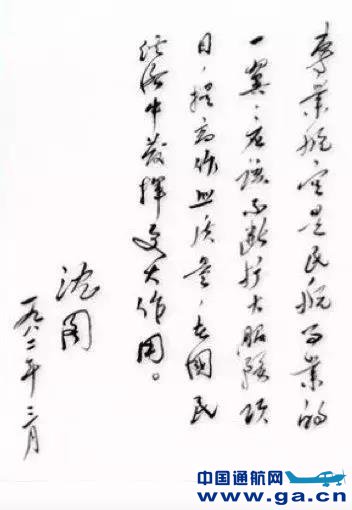 專業航空是民航事業的
一翼，应該不断扩大服務项
目，提高作业质量，在國民
经济中發揮更大作用。
沈图
一九八二年三月
中国通航网
www.ga.cn